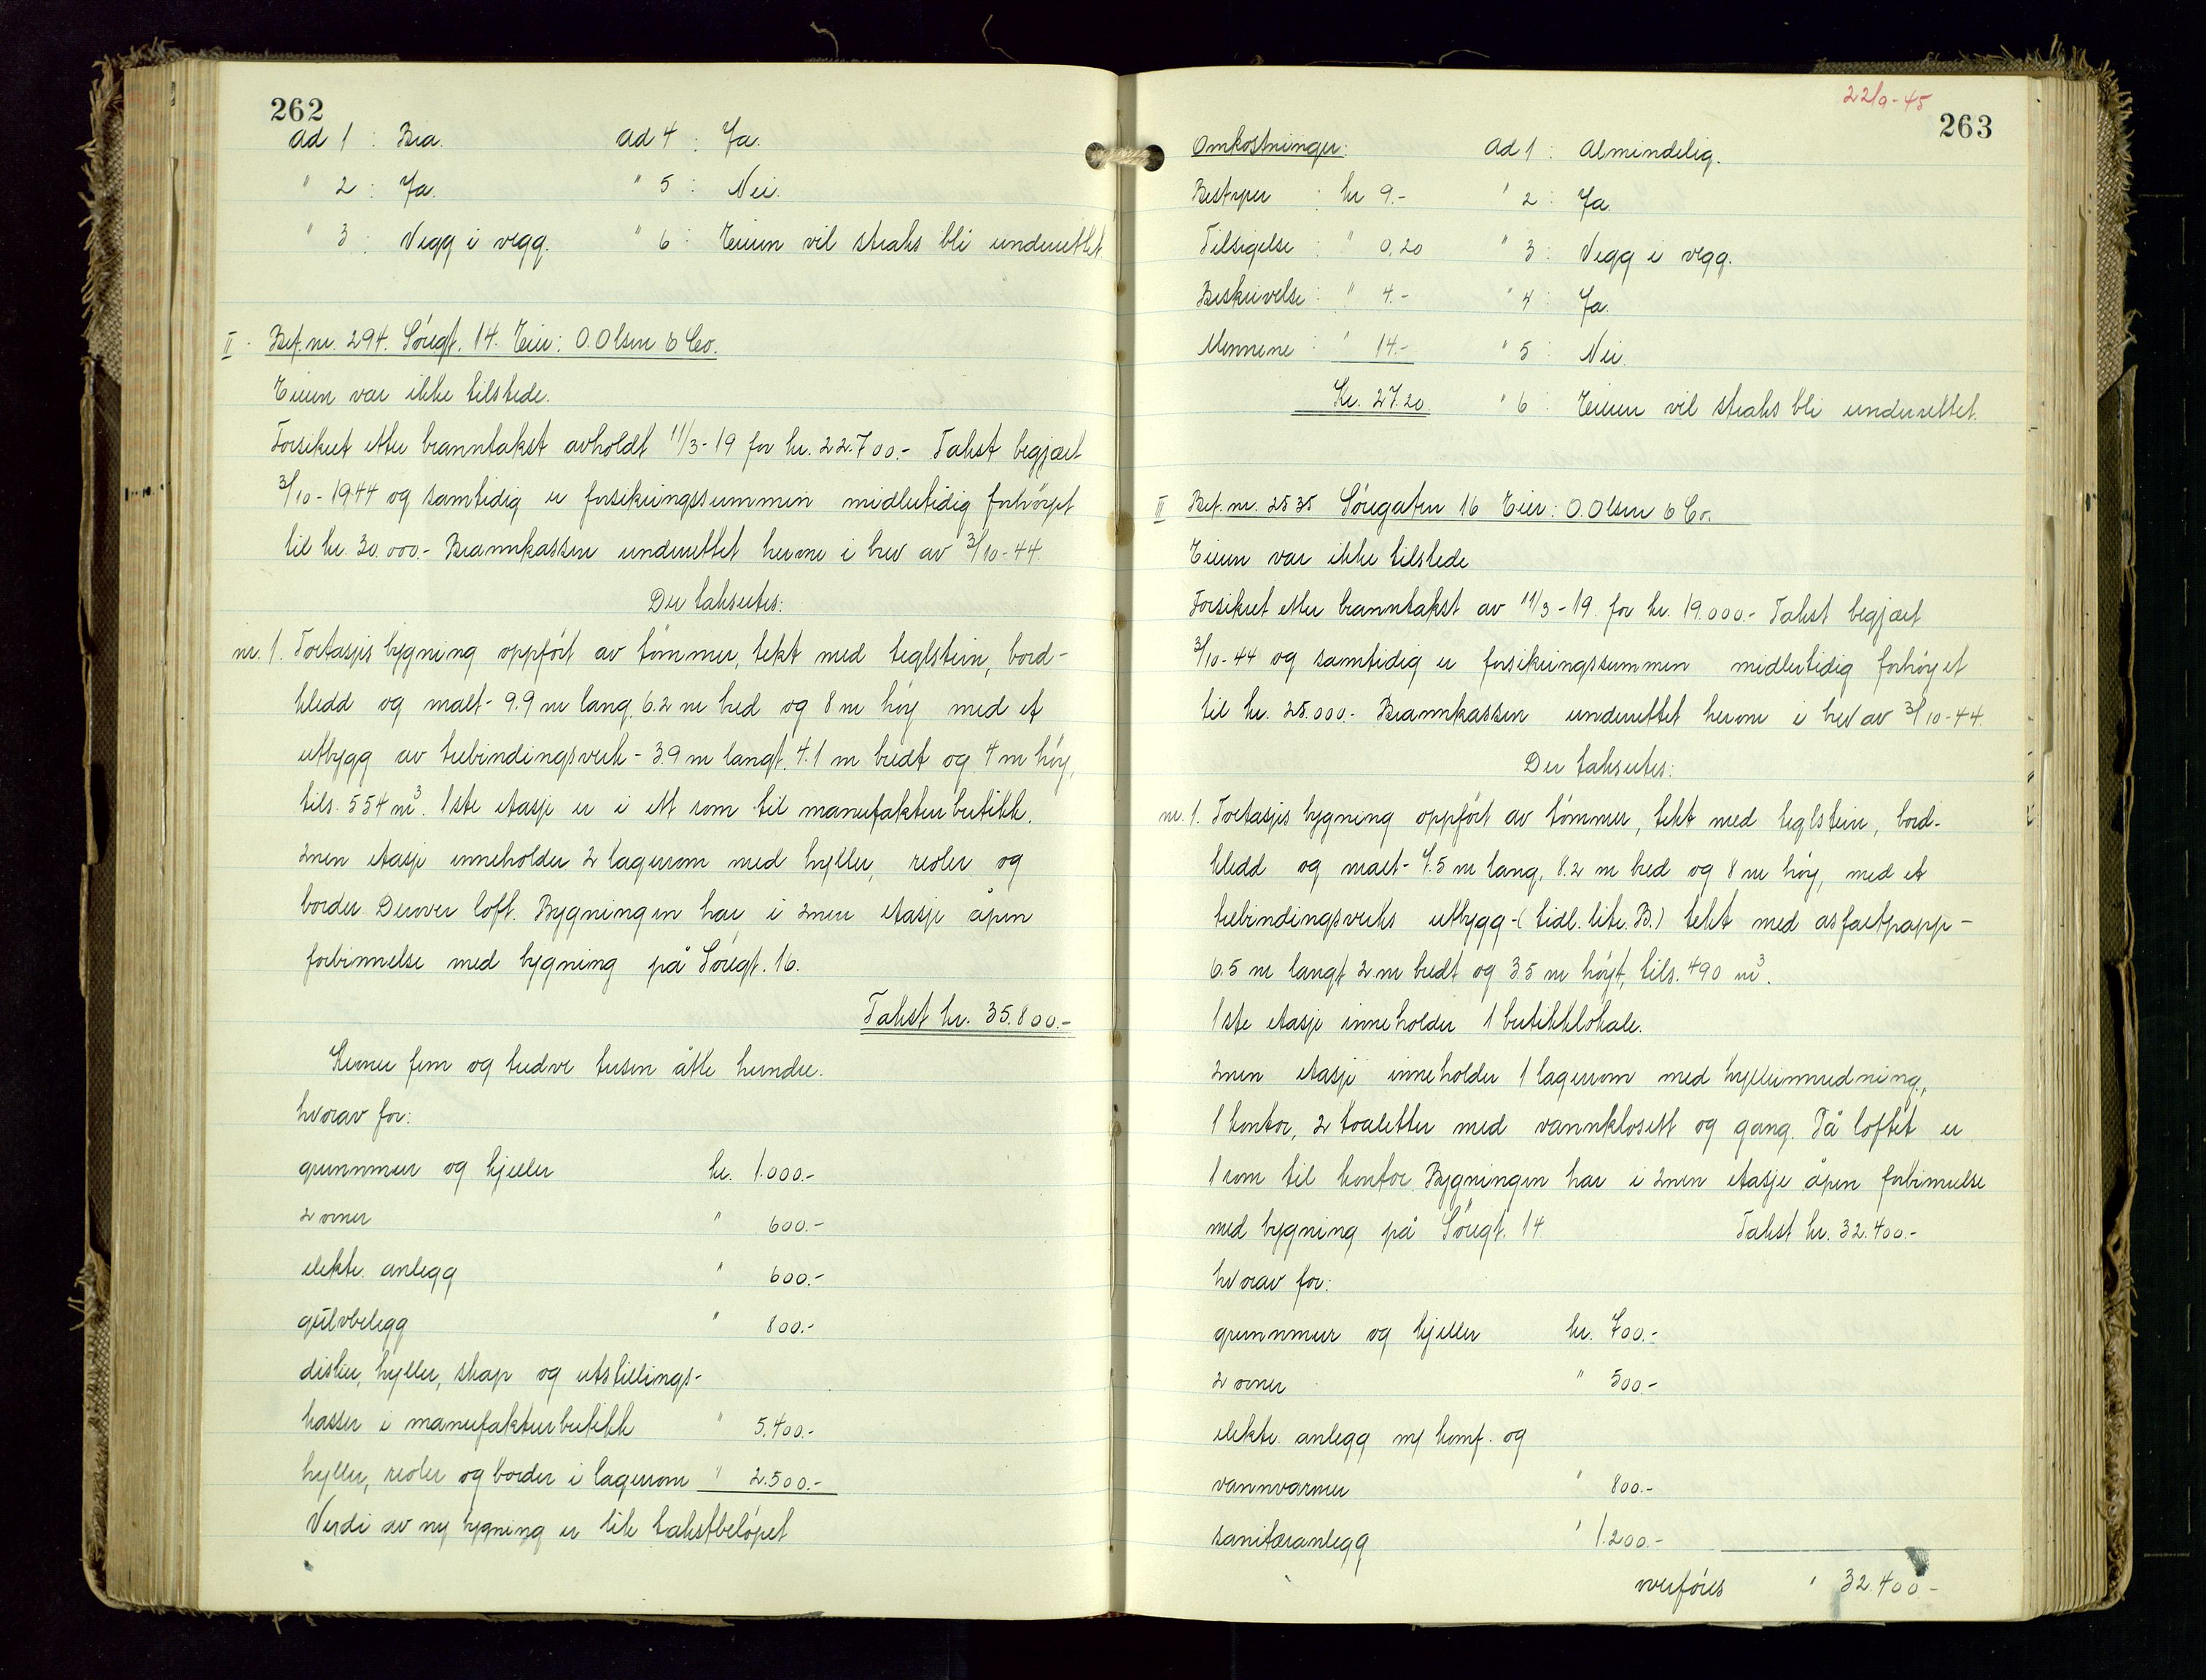 262
ad 1 : Bra. ad 4 : Ja.
" 2 : Ja. " 5 : Nei.
" 3 : Vegg i vegg. " 6 : Eieren vil straks bli underrettet.
II. Bef. nr. 294. Söregt. 14. Eier: O. Olsen & Co.
Eieren var ikke tilstede.
Forsikret etter branntakst avholdt 11/3-19 for kr. 22.700.- Takst begjært
3/10-1944 og samtidig er forsikringssummen midlertidig forhöyet
til kr. 30.000.- Brannkassen underrettet herom i brev av 3/10-44.
Der takseres:
nr. 1. Toetasjes bygning oppfört av tömmer, tekt med teglstein, bord-
kledd og malt - 9.9 m lang, 6.2 m bred og 8 m höy med et
utbygg av trebindingsverk - 3.9 m langt, 4.1 m bredt og 4 m höy,
tils. 554 m3. 1ste etasje er i ett rom til manufakturbutikk.
2nen etasje inneholder 2 lagerrom med hyller, reoler og
border. Derover loft. Bygningen har i 2nen etasje åpen
forbinnelse med bygning på Söregt. 16.
Takst kr. 35.800.-
Kroner fem og tredve tusen åtte hundre.
hvorav for:
grunnmur og kjeller kr. 1.000.-
2 ovner " 600.-
elektr. anlegg " 600.-
gulvbelegg " 800.-
disker, hyller, skap og utstillings-
kasser i manufakturbutikk " 5.400.-
hyller, reoler og border i lagerrom " 2.500.-
Verdi av ny bygning er lik takstbelöpet
22/9-45
263
Omkostninger: ad 1 : Almindelig.
Bestyrer : kr 9.- " 2 : Ja.
Tilsigelse : " 0,20 " 3 : Vegg i vegg.
Beskrivelse : " 4.- " 4 : Ja.
Mennene : " 14.- " 5 : Nei.
Kr. 27.20. " 6 : Eieren vil straks bli underrettet.
II Bef. nr. 2535 Söregaten 16 Eier: O. Olsen & Co.
Eieren var ikke tilstede
Forsikret etter branntakst av 11/3-19. for kr. 19.000.- Takst begjært
3/10-44 og samtidig er forsikringssummen midlertidig forhöyet
til kr. 25.000.- Brannkassen underrettet herom i brev av 3/10-44.
Der takseres:
nr. 1. Toetasjes bygning oppfört av tömmer, tekt med teglstein, bord-
kledd og malt - 7.5 m lang, 8.2 m bred og 8 m höy, med et
trebindingsverks utbygg - (tidl. litr. B.) tekt med asfaltpapp -
6.5 m langt 2 m bredt og 3.5 m höyt, tils. 490 m3.
1ste etasje inneholder 1 butikklokale.
2nen etasje inneholder 1 lagerrom med hylleinnredning,
1 kontor, 2 toaletter med vannklosett og gang. På loftet er
1 rom til kontor. Bygningen har i 2nen etasje åpen forbinnelse
med bygning på Söregt. 14 Takst kr. 32.400.-
hvorav for:
grunnmur og kjeller kr. 700.-
2 ovner " 500.-
elektr. anlegg m/ komf. og
vannvarmer " 800.-
sanitæranlegg " 1.200.-
overföres " 32.400.-